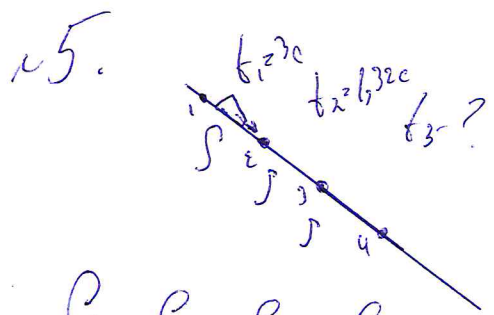 №5.
t₁=3с
t₂=1,32с
t₃-?
1
S
2
S
3
S
4